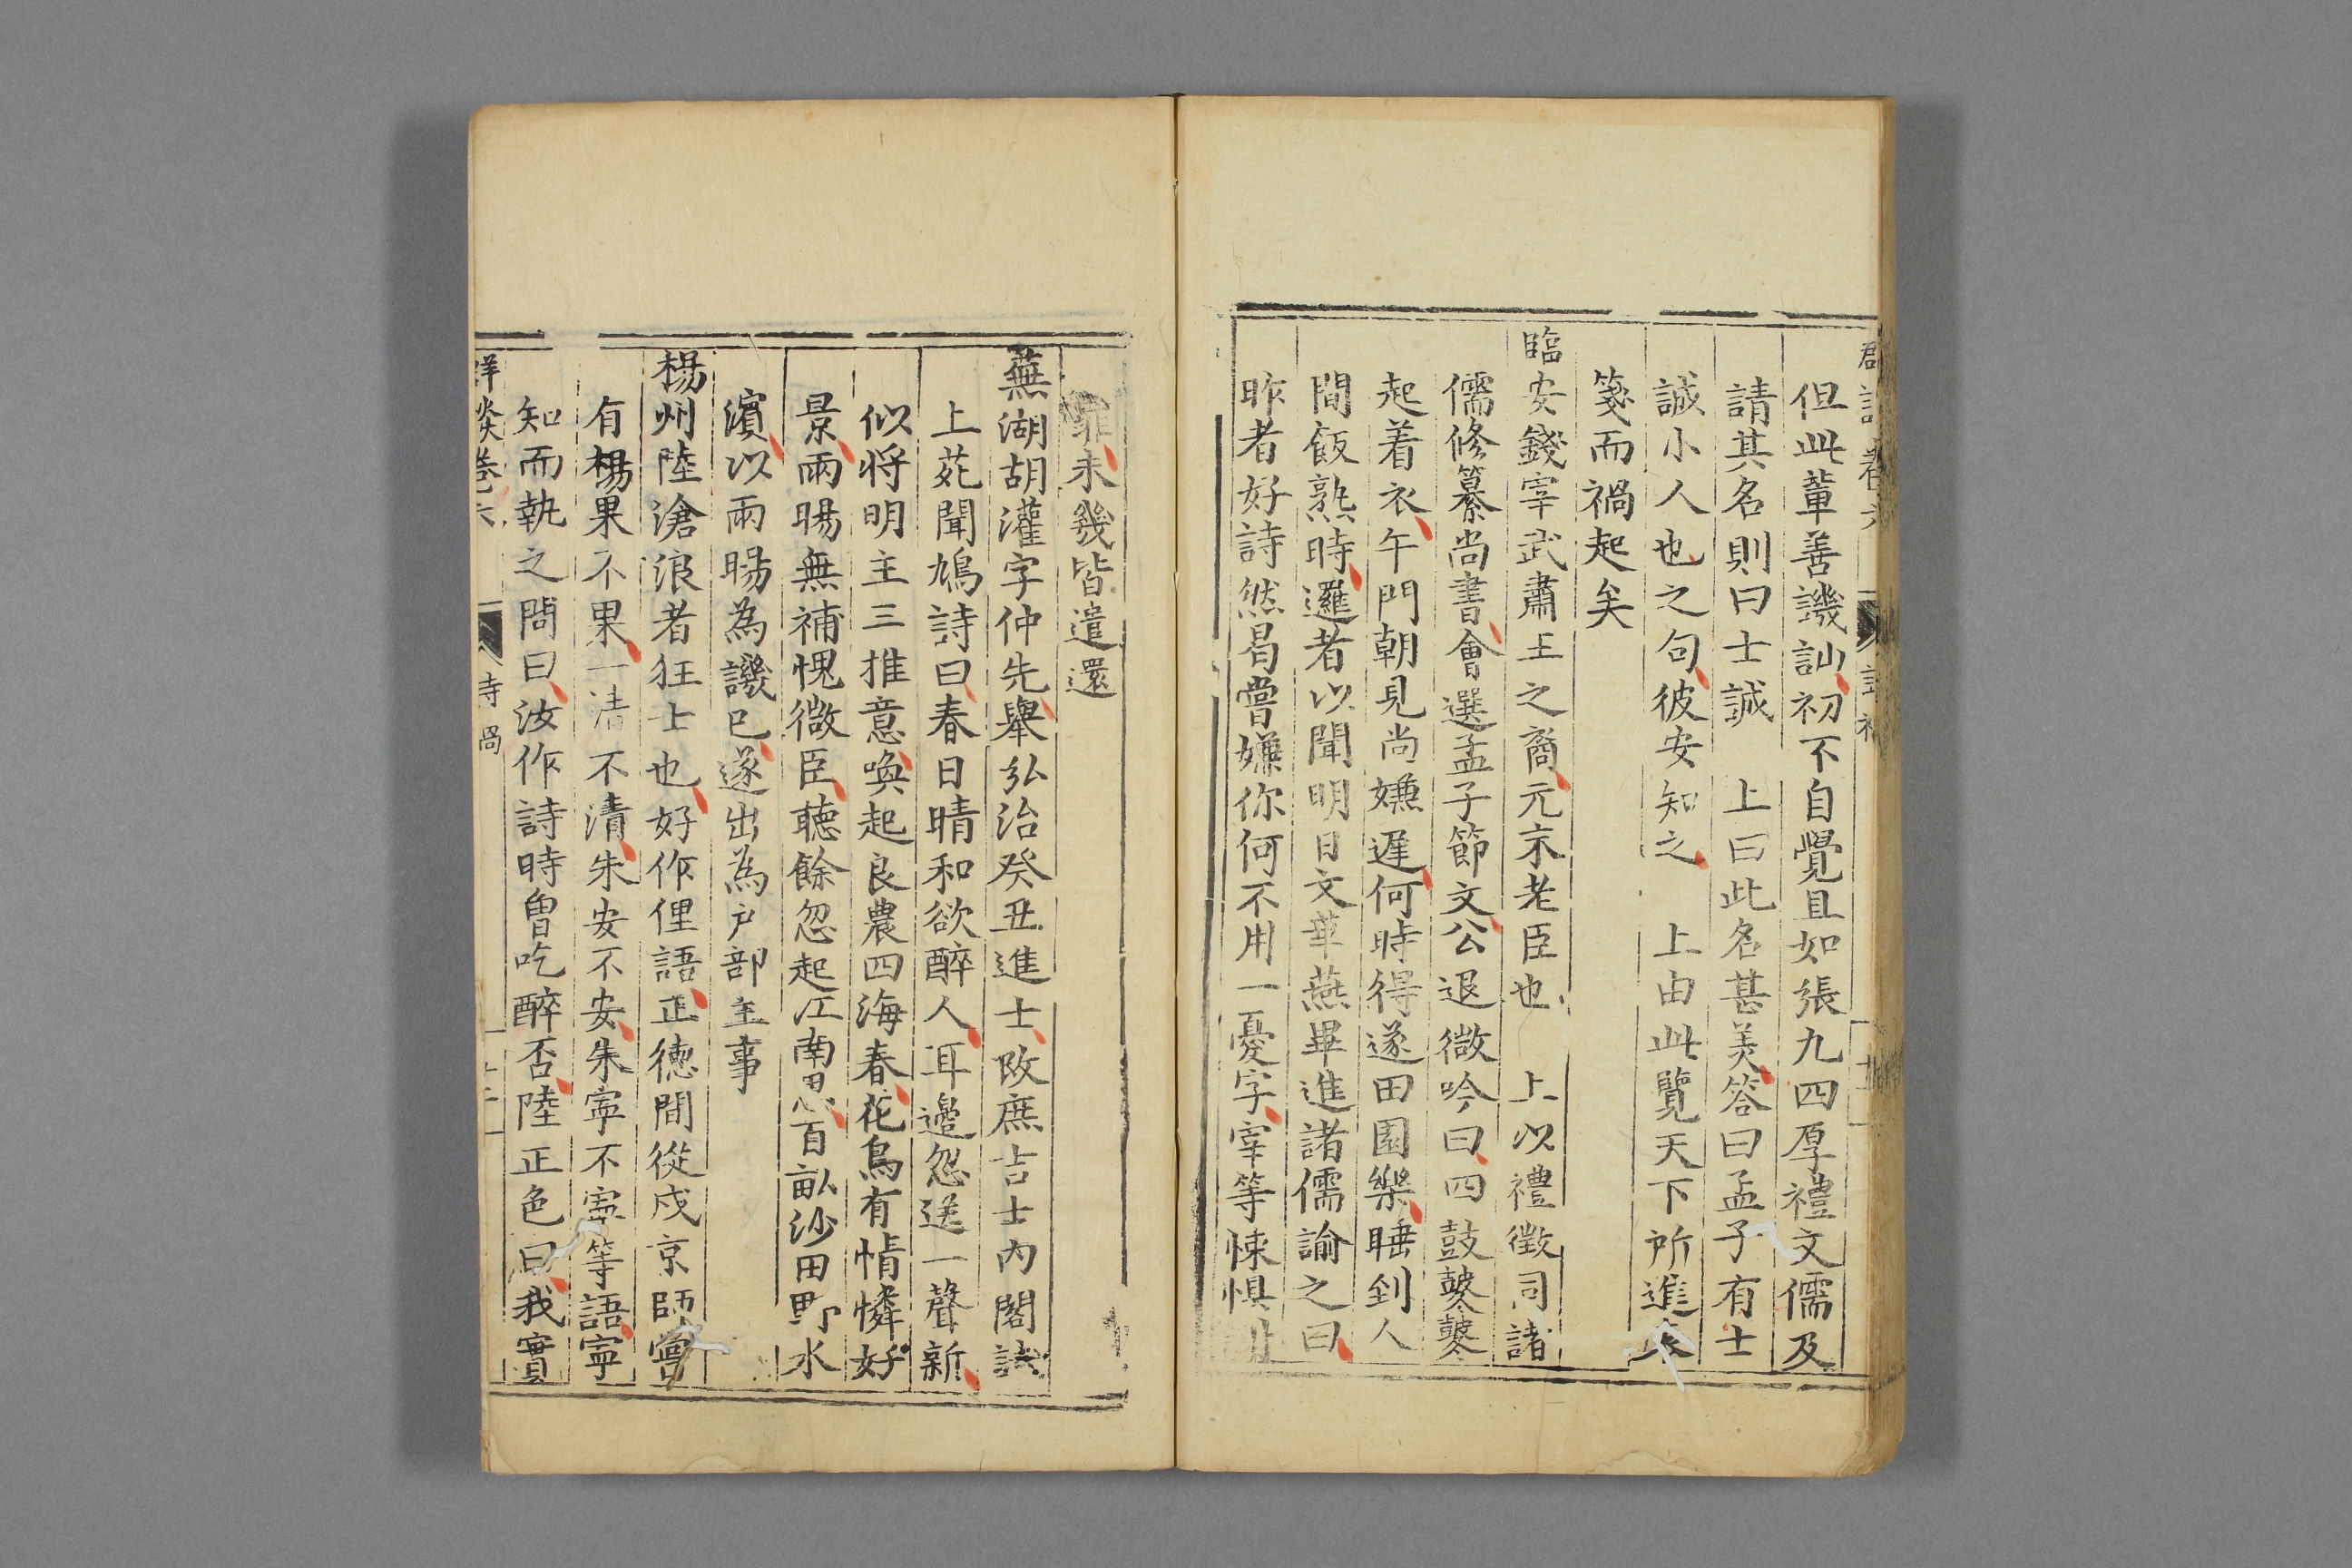 但此輩善譏訕初不自覺且如張九四厚禮文儒及
請其名則曰士誠　上曰此名甚美答曰孟子有士
誠小人也之句彼安知之　上由此覽天下所進表
箋而禍起矣
臨安錢宰武肅王之裔元末老臣也　上以禮徵同諸
儒修纂尚書會選孟子節文公退微吟曰四鼓鼕鼕
起着衣午門朝見尚嫌遲何時得遂田園樂睡到人
間飯熟時邏者以聞明日文華燕畢進諸儒諭之曰
昨者好詩然曷嘗嫌你何不用一憂字宰等悚惧
罪未幾皆遣還
蕪湖胡灌字仲先舉弘治癸丑進士改庶吉士內閣試
上苑聞鳩詩曰春日晴和欲醉人耳邊忽送一聲新
似将明主三推意喚起良農四海春花鳥有情憐好
景雨暘無補愧微臣聴餘忽起江南思百畝沙田野水
濵以雨暘為譏已遂出為户部主事
楊州陸滄浪者狂士也好作俚語正徳間從戍京師嘗
有楊果不果一清不清朱安不安朱寜不寜等語寜
知而執之問曰汝作詩時曽吃醉否陸正色曰我實
詳談卷六